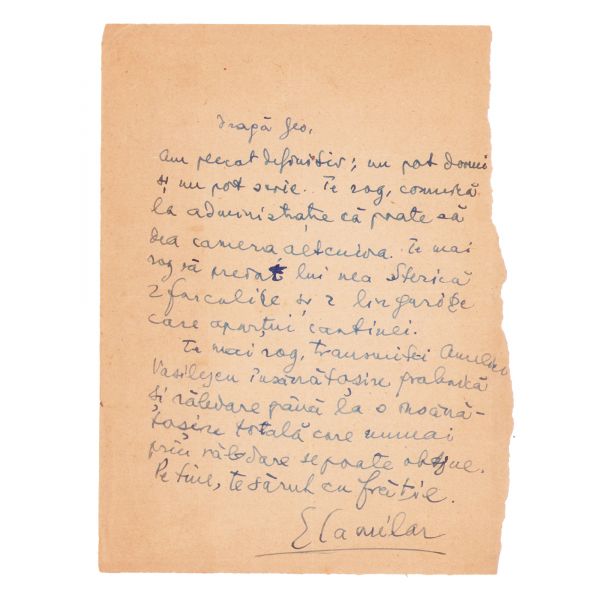 Dragă Geo,
Am plecat definitiv; nu pot dormi
și nu pot scrie. Te rog, comunică
la administrație că poate să
dea camera altcuiva. Te mai
rog să predai lui nea Sterică
2 furculițe și 2 lingurițe
care aparțin cantinei.
Te mai rog, transmite-i Ameliei
Vasilescu însănătoșire grabnică
și răbdare până la o însănă-
toșire totală care numai
prin răbdare se poate obține.
Pe tine, te sărut cu frăție.
E Camilar